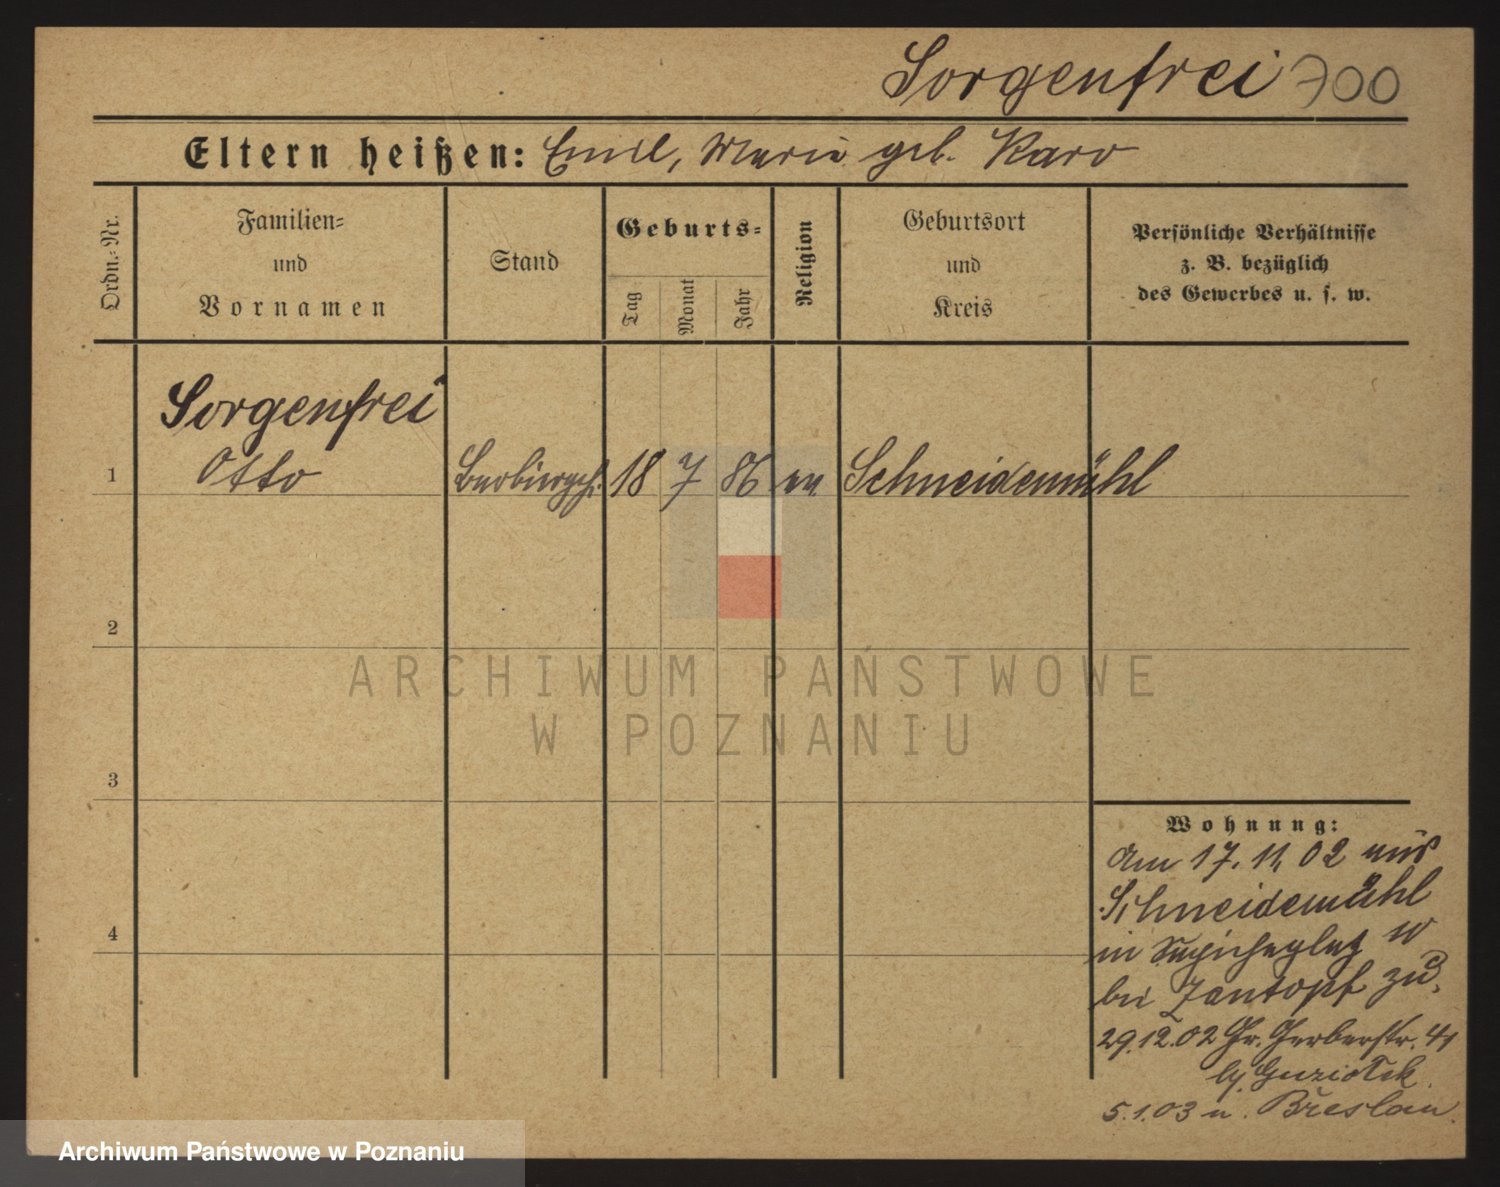 Sorgenfrei 700
Eltern heißen: Emil, Marie geb. Karo
Ordn.-Nr.
Familien-
und
Vornamen
Stand
Geburts-
Tag
Monat
Jahr
Religion
Geburtsort
und
Kreis
Persönliche Verhältnisse
z. B. bezüglich
des Gewerbes u. s. w.
Sorgenfrei
1 Otto Barbiergeh. 18 7 86 ev Schneidemühl
2
3
4
Wohnung:
Am 17. 11. 02 aus
Schneidemühl
in Sapiehaplatz 10
bei Zantopf zu.
29.12.02 Gr. Gerberstr. 41
5.1.03 n. Breslau
ARCHIWUM PAŃSTWOWE
W POZNANIU
Archiwum Państwowe w Poznaniu